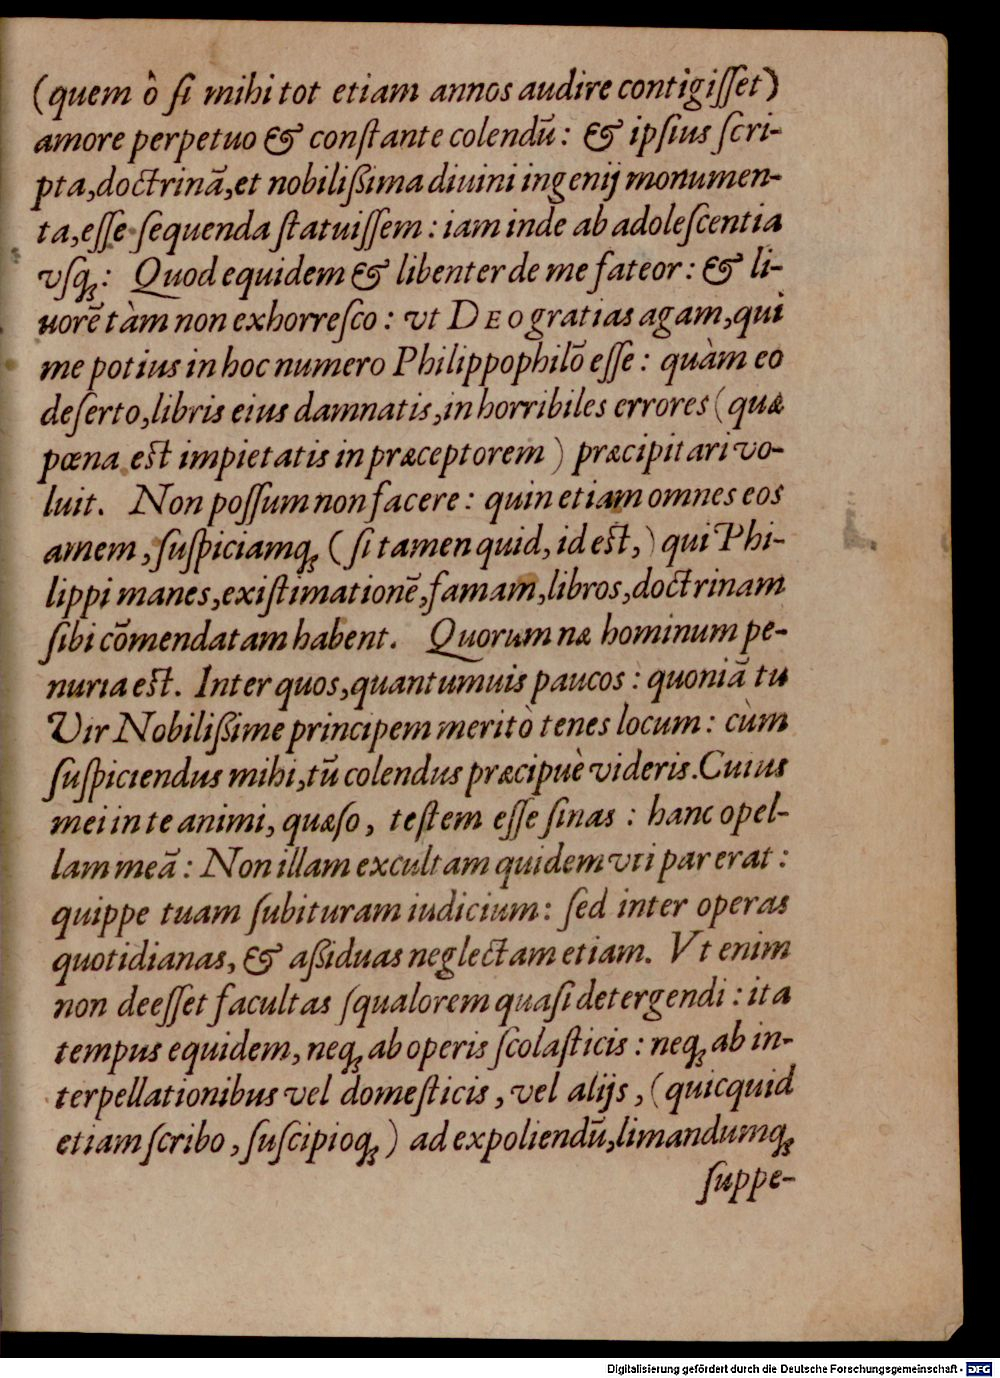 (quem ô si mihi tot etiam annos audire contigisset)
amore perpetuo & constante colendū: & ipsius scri-
pta, doctrinā, et nobilißima diuini ingenij monumen-
ta, esse sequenda statuissem: iam inde ab adolescentia
vsq;: Quod equidem & libenter de me fateor: & li-
uorē tàm non exhorresco: vt DEO gratias agam, qui
me potius in hoc numero Philippophilō esse: quàm eo
deserto, libris eius damnatis, in horribiles errores (quæ
pœna est impietatis in præceptorem) præcipitari vo-
luit. Non possum non facere: quin etiam omnes eos
amem, suspiciamq; (si tamen quid, id est,) qui Phi-
lippi manes, existimationē, famam, libros, doctrinam
sibi cōmendatam habent. Quorum næ hominum pe-
nuria est. Inter quos, quantumuis paucos: quoniā tu
Vir Nobilißime principem meritò tenes locum: cùm
suspiciendus mihi, tū colendus præcipuè videris. Cuius
mei in te animi, quæso, testem esse sinas: hanc opel-
lam meā: Non illam excultam quidem vti par erat:
quippe tuam subituram iudicium: sed inter operas
quotidianas, & aßiduas neglectam etiam. Vt enim
non deesset facultas squalorem quasi detergendi: ita
tempus equidem, neq; ab operis scolasticis: neq; ab in-
terpellationibus vel domesticis, vel alijs, (quicquid
etiam scribo, suscipioq;) ad expoliendū, limandumq;
suppe-
Digitalisierung gefördert durch die Deutsche Forschungsgemeinschaft - DFG